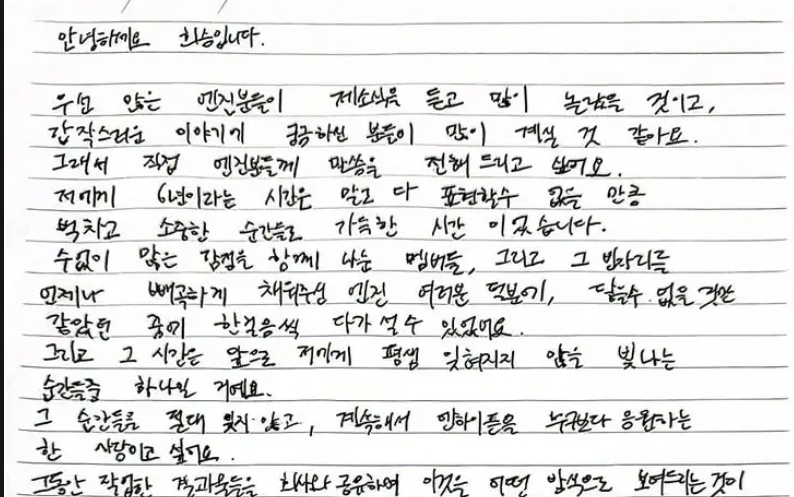 안녕하세요 희승입니다.
우선 많은 엔진분들이 제소식을 듣고 많이 놀랐을 것이고,
갑작스러운 이야기에 궁금하신 분들이 많이 계실 것 같아요.
그래서 직접 엔진분들께 말씀을 전해 드리고 싶어요.
저에게 6년이라는 시간은 말로 다 표현할수 없을 만큼
벅차고 소중한 순간들로 가득한 시간 이었습니다.
수없이 많은 감정을 함께 나눈 멤버들, 그리고 그 빈자리를
언제나 빼곡하게 채워주신 엔진 여러분 덕분에, 닿을수 없을 것만
같았던 꿈에 한걸음씩 다가 설수 있었어요.
그리고 그 시간은 앞으로 저에게 평생 잊혀지지 않을 빛나는
순간들중 하나일 거예요.
그 순간들을 절대 잊지 않고, 계속해서 엔하이픈을 누구보다 응원하는
한 사람이고 싶어요.
그동안 작업한 결과물들을 회사와 공유하며 이것을 어떤 방식으로 보여드리는 것이